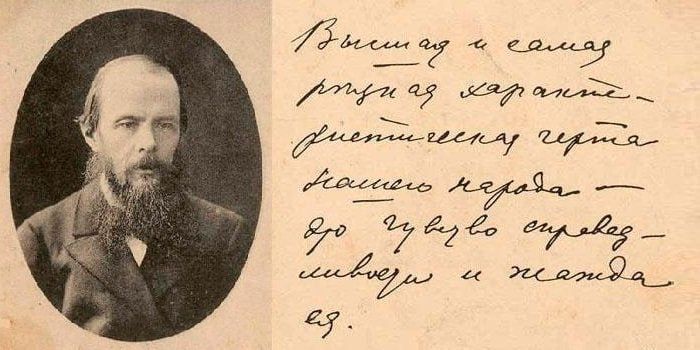 Высшая и самая
резкая характе-
ристическая черта
нашего народа —
это чувство справед-
ливости и жажда
ея.